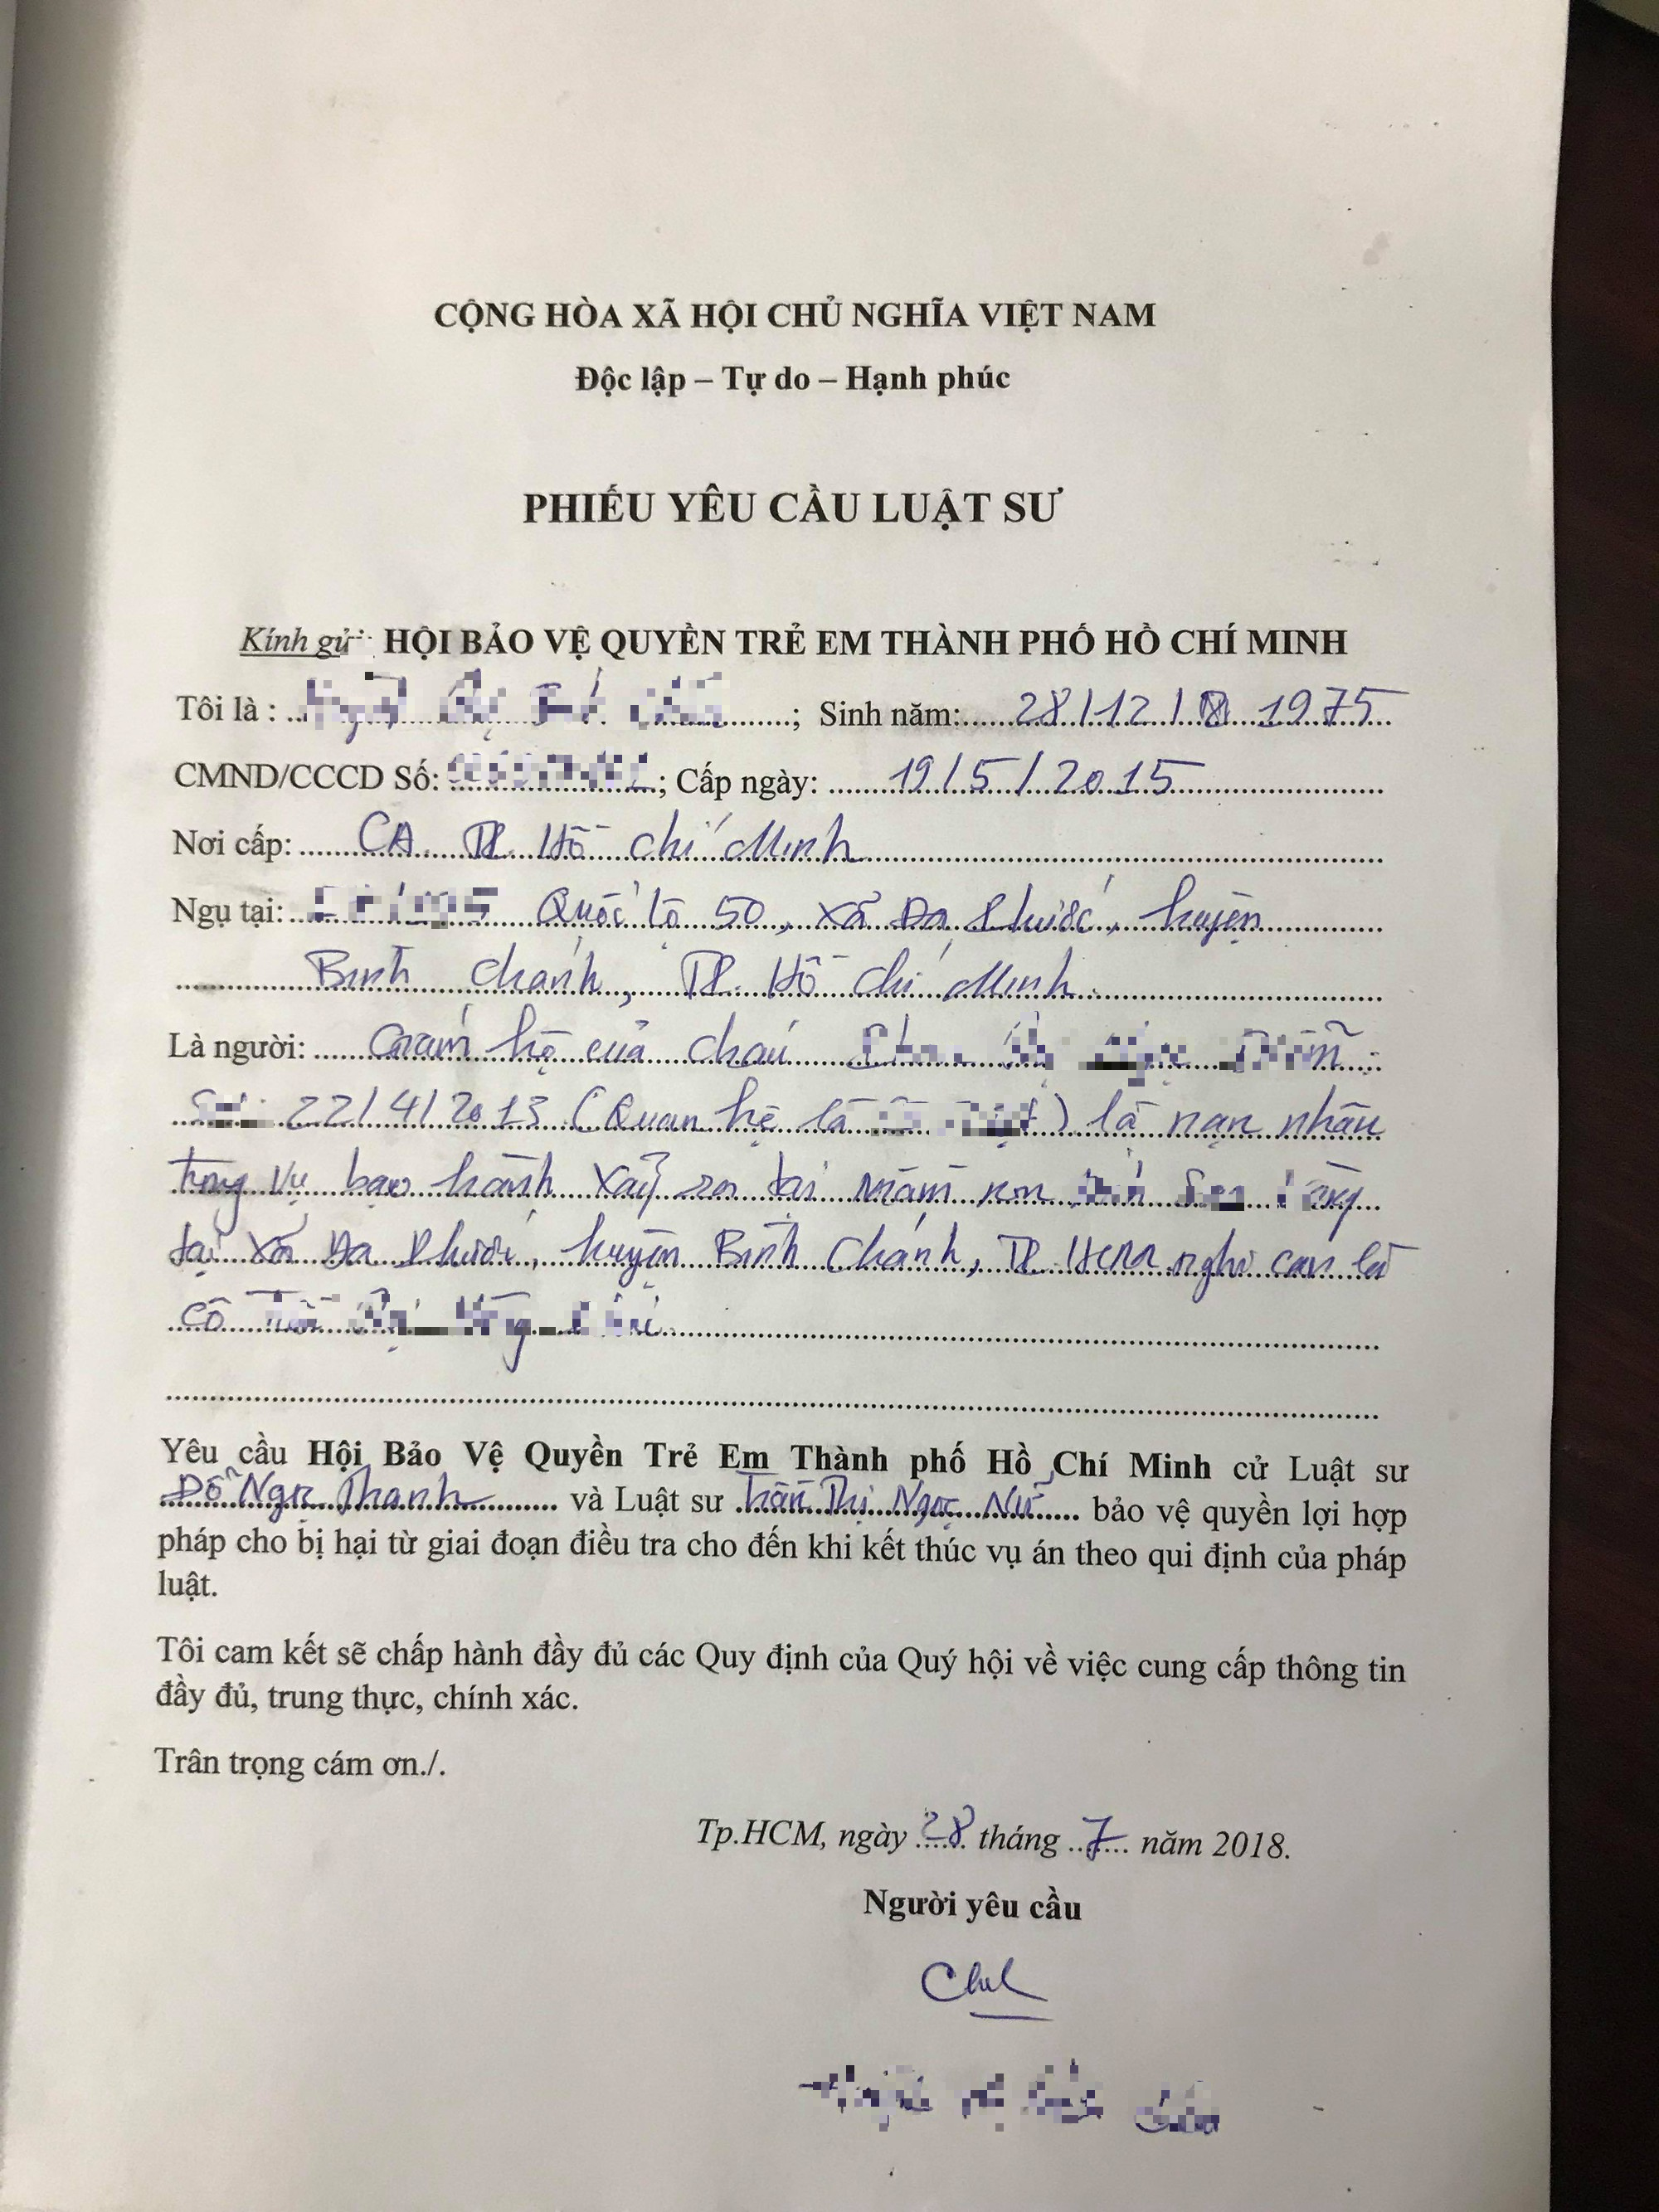 CỘNG HÒA XÃ HỘI CHỦ NGHĨA VIỆT NAM
Độc lập – Tự do – Hạnh phúc
PHIẾU YÊU CẦU LUẬT SƯ
Kính gử HỘI BẢO VỆ QUYỀN TRẺ EM THÀNH PHỐ HỒ CHÍ MINH
Tôi là : ; Sinh năm: 28/12/ 1975
CMND/CCCD Số: ; Cấp ngày: 19/5/2015
Nơi cấp: CA TP. Hồ Chí Minh
Ngụ tại: Quốc lộ 50, xã Đa Phước, huyện
Bình Chánh, TP. Hồ Chí Minh.
Là người: Giám hộ của cháu
22/4/2013 (Quan hệ là ) là nạn nhân
trong vụ bạo hành xảy ra tại mầm non
tại xã Đa Phước, huyện Bình Chánh, TP. HCM nghi can là
cô
Yêu cầu Hội Bảo Vệ Quyền Trẻ Em Thành phố Hồ Chí Minh cử Luật sư
Đỗ Ngọc Thanh và Luật sư Trần Thị Ngọc Nữ bảo vệ quyền lợi hợp
pháp cho bị hại từ giai đoạn điều tra cho đến khi kết thúc vụ án theo qui định của pháp
luật.
Tôi cam kết sẽ chấp hành đầy đủ các Quy định của Quý hội về việc cung cấp thông tin
đầy đủ, trung thực, chính xác.
Trân trọng cám ơn./.
Tp.HCM, ngày 28 tháng 7 năm 2018.
Người yêu cầu